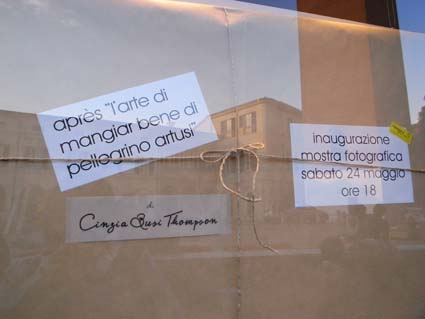 après "l'arte di
mangiar bene di
pellegrino artusi"
di
Cinzia Busi Thompson
inaugurazione
mostra fotografica
sabato 24 maggio
ore 18